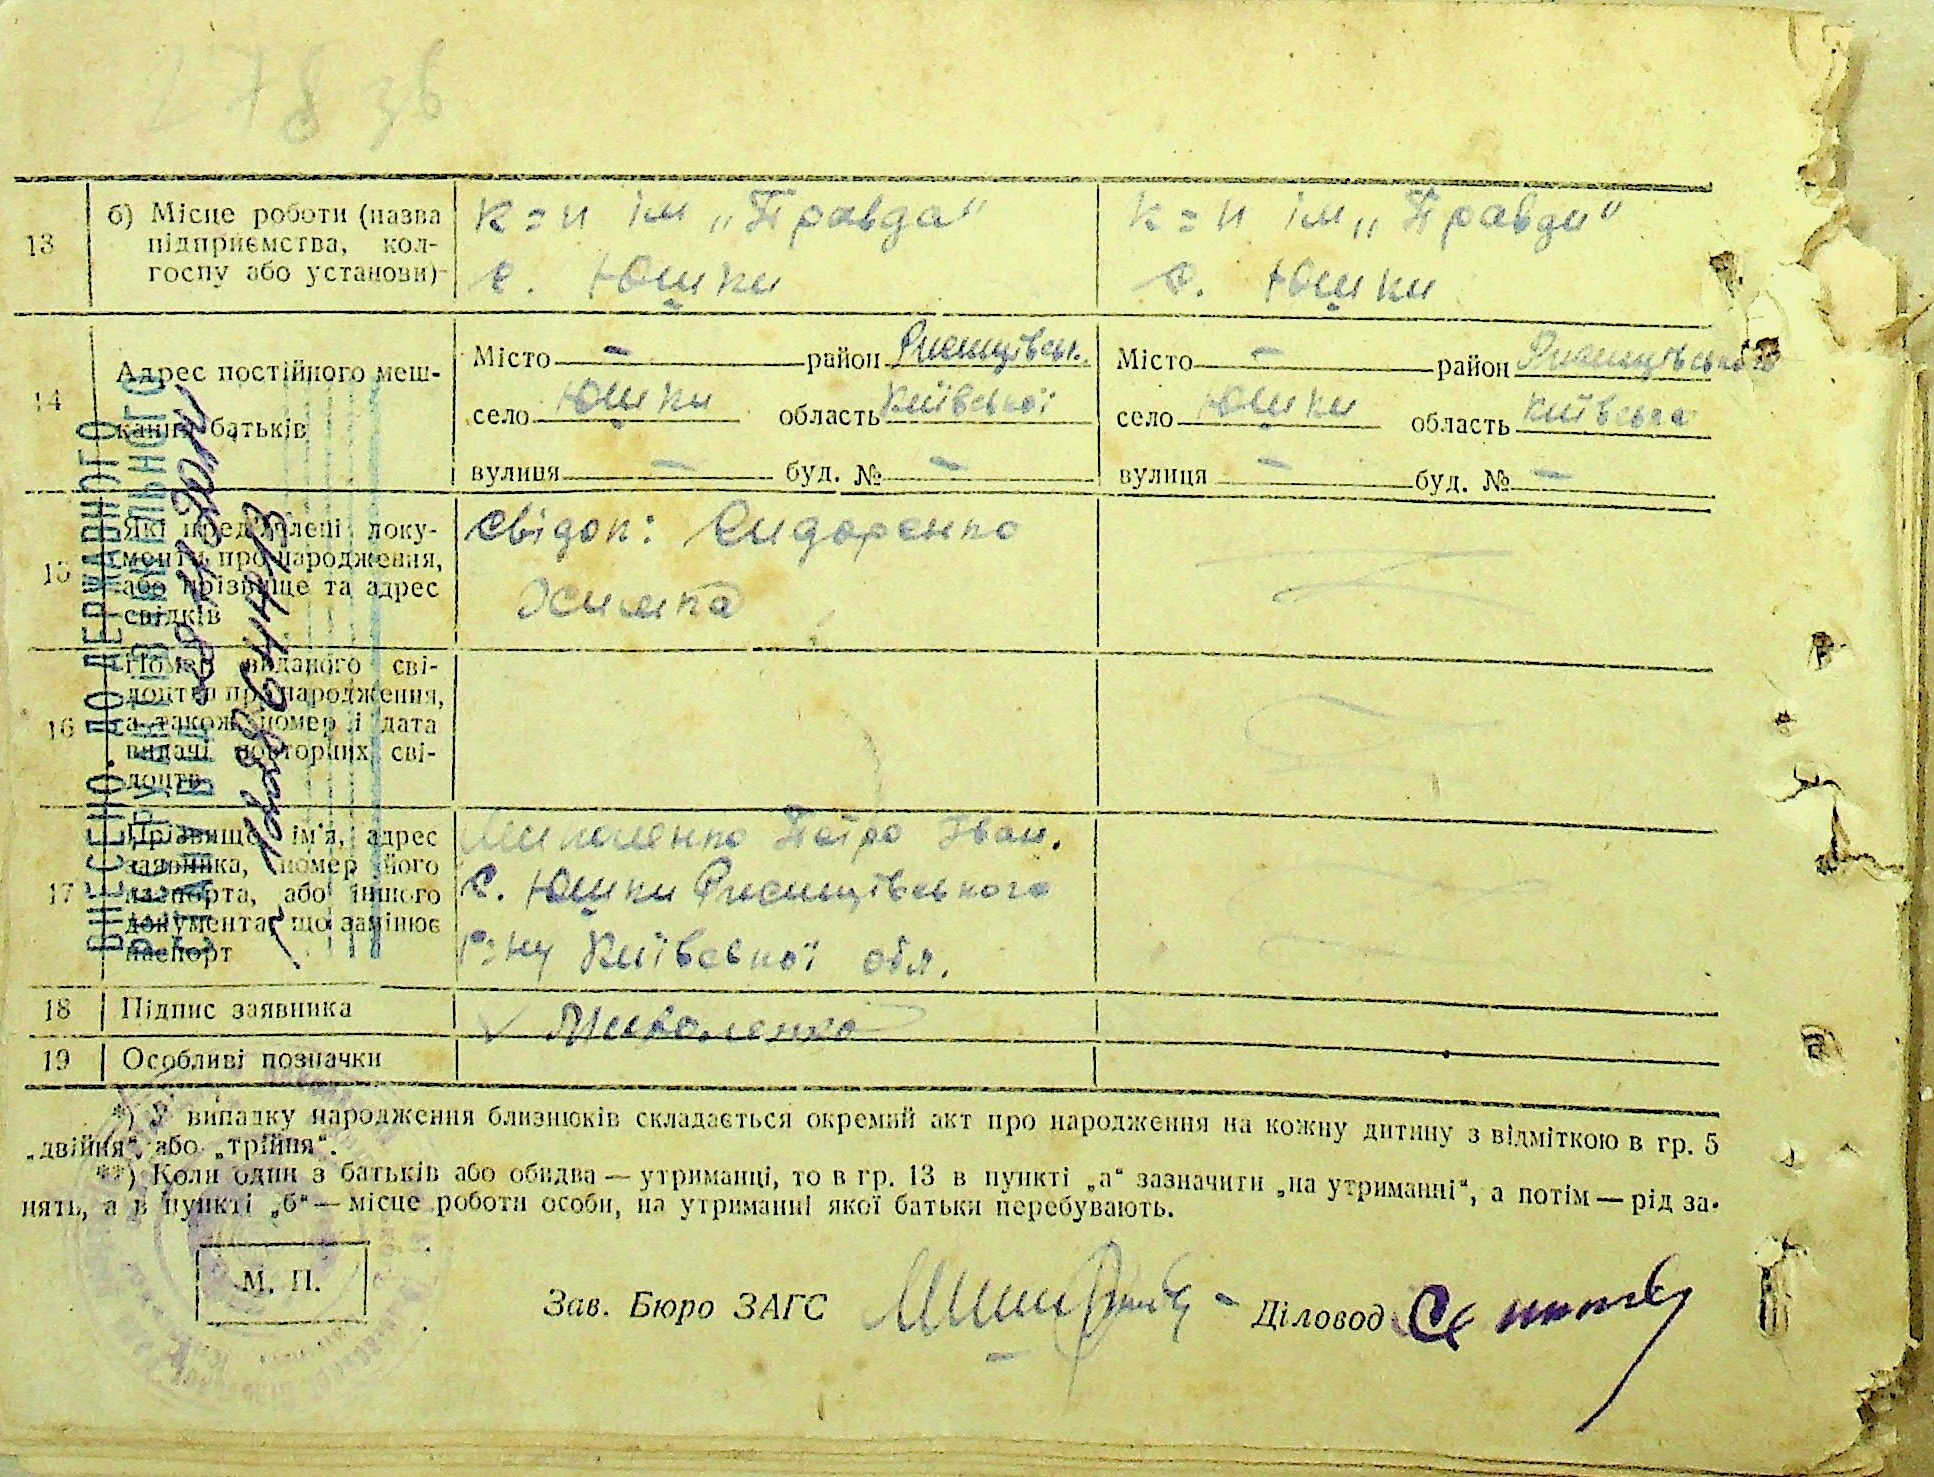 278 зв
13
б) Місце роботи (назва
підприємства, кол-
госпу або установи)
к=п ім „Правда“
с. Юшки
к=п ім „Правди“
с. Юшки
14
Адрес постійного меш-
кання батьків
Місто — район Ржищівськ.
село Юшки область Київської
вулиця — буд. № —
Місто — район Ржищівського
село Юшки область Київська
вулиця — буд. № —
15
Які пред'явлені доку-
менти про народження,
або прізвище та адрес
свідків
свідок: Сидоренко
16
Номер виданого сві-
доцтва про народження,
а також номер і дата
видачі повторних сві-
доцтв
17
Прізвище, ім'я, адрес
заявника, номер його
паспорта, або іншого
документа, що замінює
паспорт
Миколенко Петро Іван.
с. Юшки Ржищівського
р-ну Київської обл.
18
Підпис заявника
Миколенко
19
Особливі позначки
ВНЕСЕНО ДО ДЕРЖАВНОГО
*) У випадку народження близнюків складається окремий акт про народження на кожну дитину з відміткою в гр. 5
„двійня“ або „трійня“.
**) Коли один з батьків або обидва — утриманці, то в гр. 13 в пункті „а“ зазначити „на утриманні“, а потім — рід за-
нять, а в пункті „б“ — місце роботи особи, на утриманні якої батьки перебувають.
М. П.
Зав. Бюро ЗАГС
Діловод